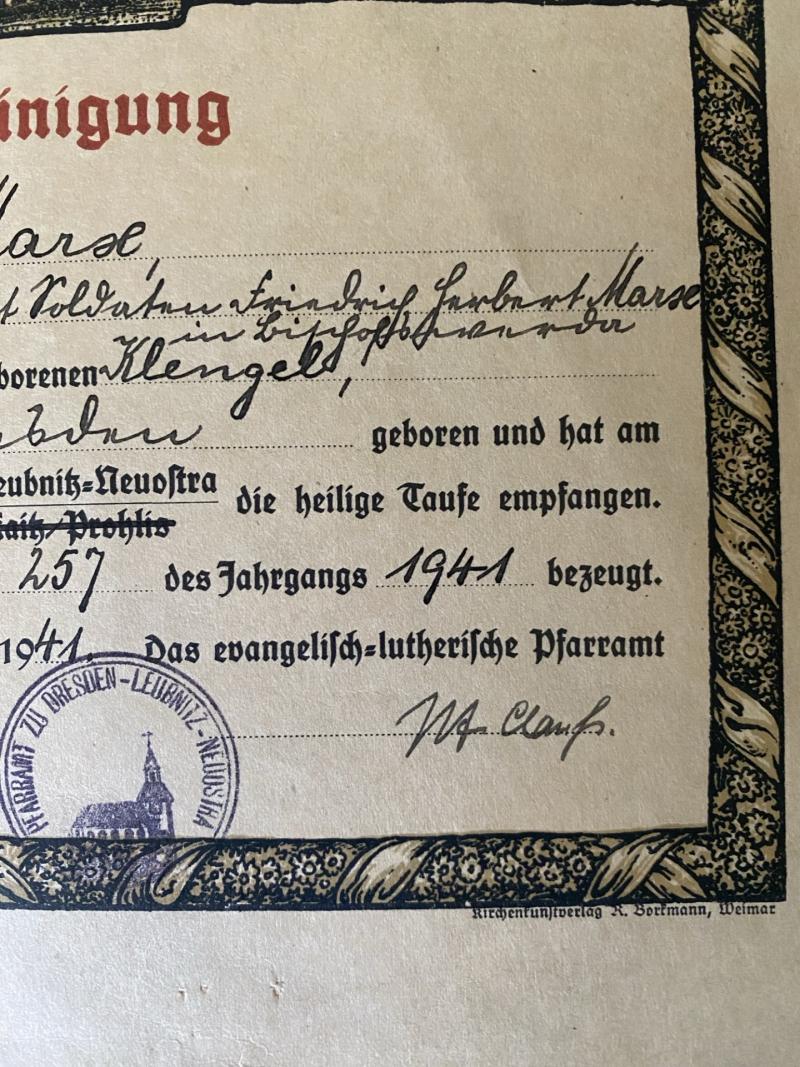 inigung
Marx,
t Soldaten Friedrich Herbert Marx
in Bischofswerda
borenen Klengel,
sden geboren und hat am
eubnitz=Neuostra die heilige Taufe empfangen.
aitz/Prohlis
257 des Jahrgangs 1941 bezeugt.
1941. Das evangelisch=lutherische Pfarramt
PFARRAMT ZU DRESDEN-LEUBNITZ-NEUOSTRA
Clauß.
Kirchenkunstverlag R. Borkmann, Weimar